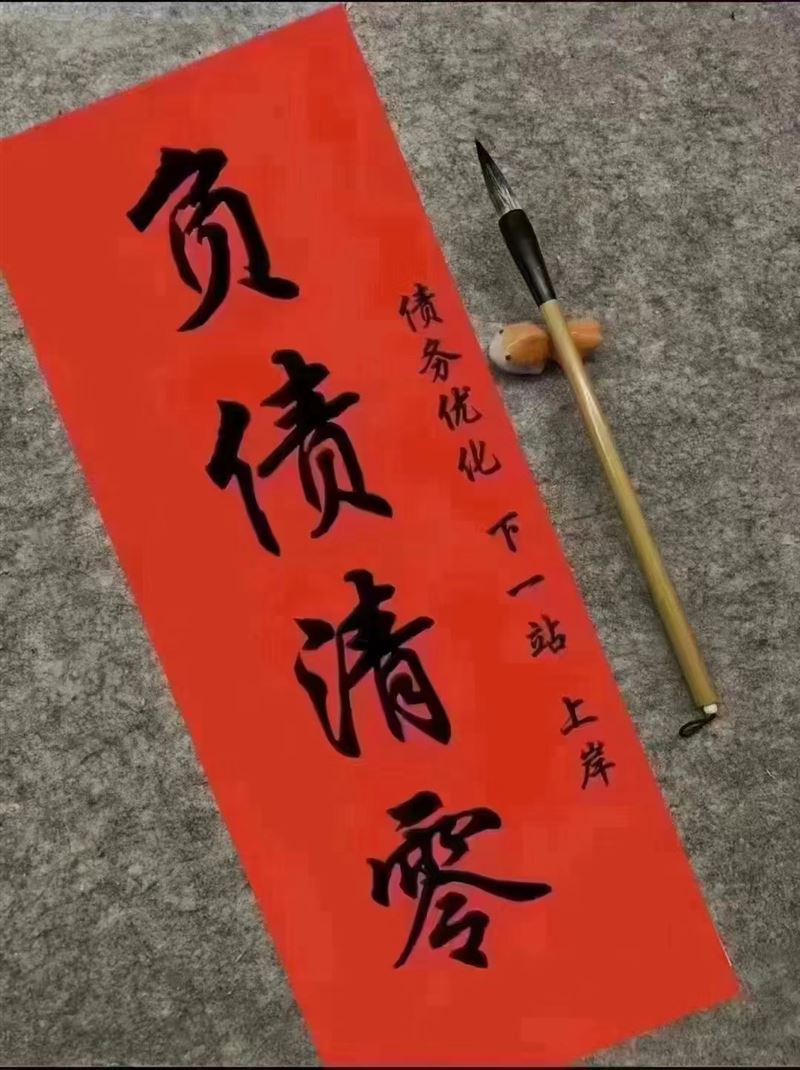 负债清零
债务优化 下一站 上岸